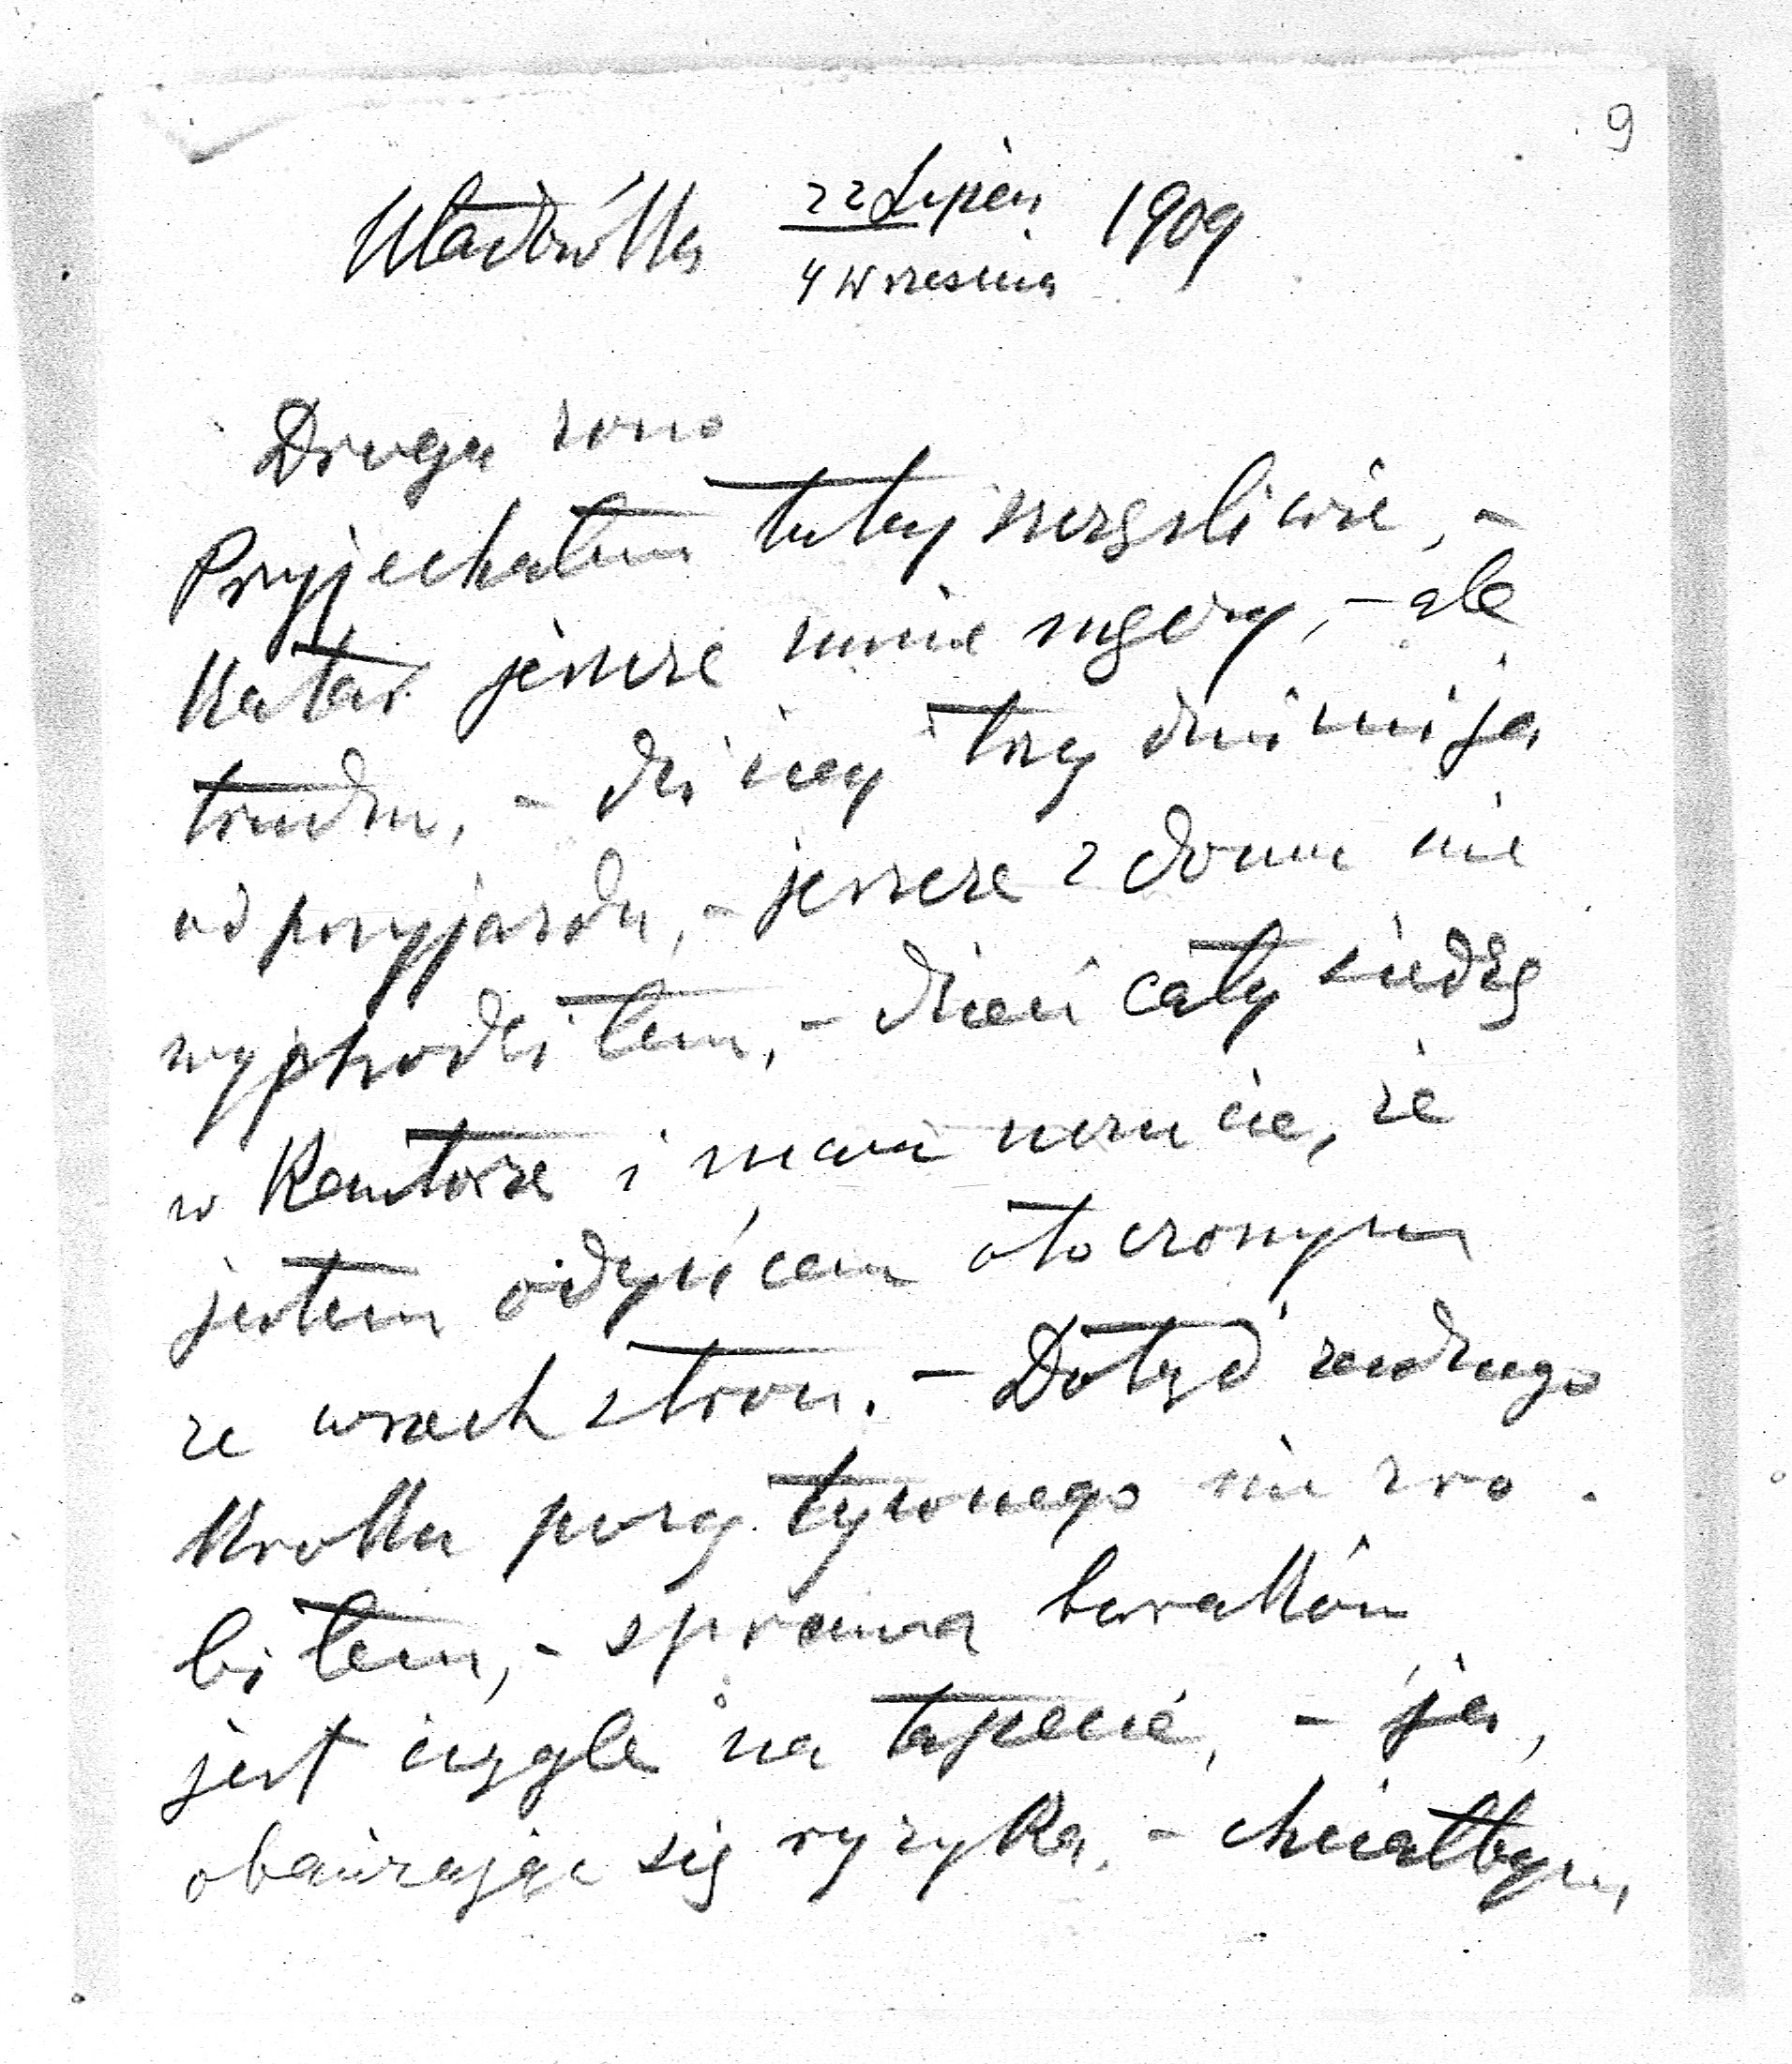 9
Władówka 22 Sierpień 1909
4 Września
Droga żono
Przyjechałem tutaj szczęśliwie, -
Katar jeszcze mnie męczy, - ale
trudno, - dzisiaj trzy dni mija
od przyjazdu, - jeszcze z domu nie
wychodziłem, - dzień cały siedzę
w Kantorze i mam uczucie, że
jestem odyńcem otoczonym
ze wszech stron. - Dotąd żadnego
kroku pozytywnego nie zro-
biłem, - sprawa buraków
jest ciągle na tapecie, - ja,
obawiając się ryzyka, - chciałbym,